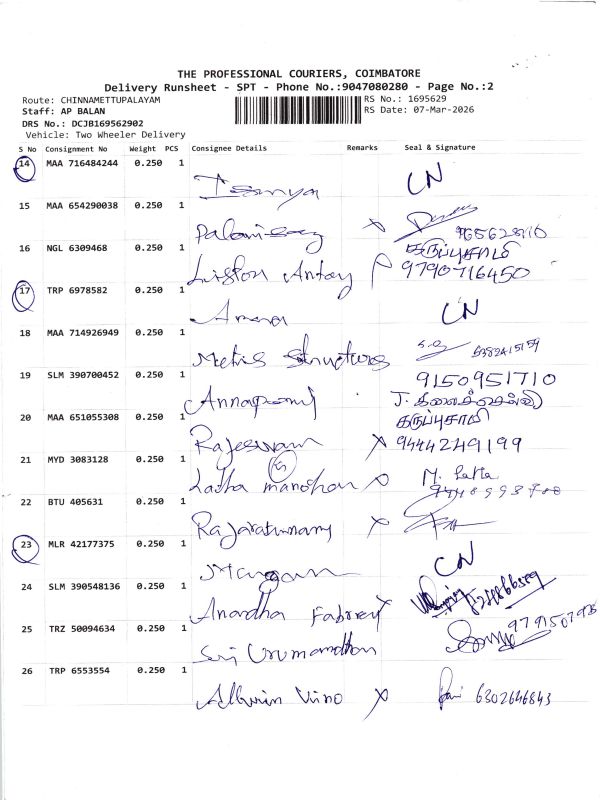 THE PROFESSIONAL COURIERS, COIMBATORE
Delivery Runsheet - SPT - Phone No.:9047080280 - Page No.:2
Route: CHINNAMETTUPALAYAM RS No.: 1695629
Staff: AP BALAN RS Date: 07-Mar-2026
DRS No.: DCJB169562902
Vehicle: Two Wheeler Delivery
S No Consignment No Weight PCS Consignee Details Remarks Seal & Signature
14 MAA 716484244 0.250 1
CN
15 MAA 654290038 0.250 1
16 NGL 6309468 0.250 1
கருப்புசாமி
Antony 9790716450
17 TRP 6978582 0.250 1
CN
18 MAA 714926949 0.250 1
Metis Structures
19 SLM 390700452 0.250 1
9150951710
J.
20 MAA 651055308 0.250 1
கருப்புசாமி
Rajeswari 9444249199
21 MYD 3083128 0.250 1
Latha manohan M. Latha
22 BTU 405631 0.250 1
Rajaratnam
23 MLR 42177375 0.250 1
CN
24 SLM 390548136 0.250 1
25 TRZ 50094634 0.250 1
Sri
26 TRP 6553554 0.250 1
6302646843